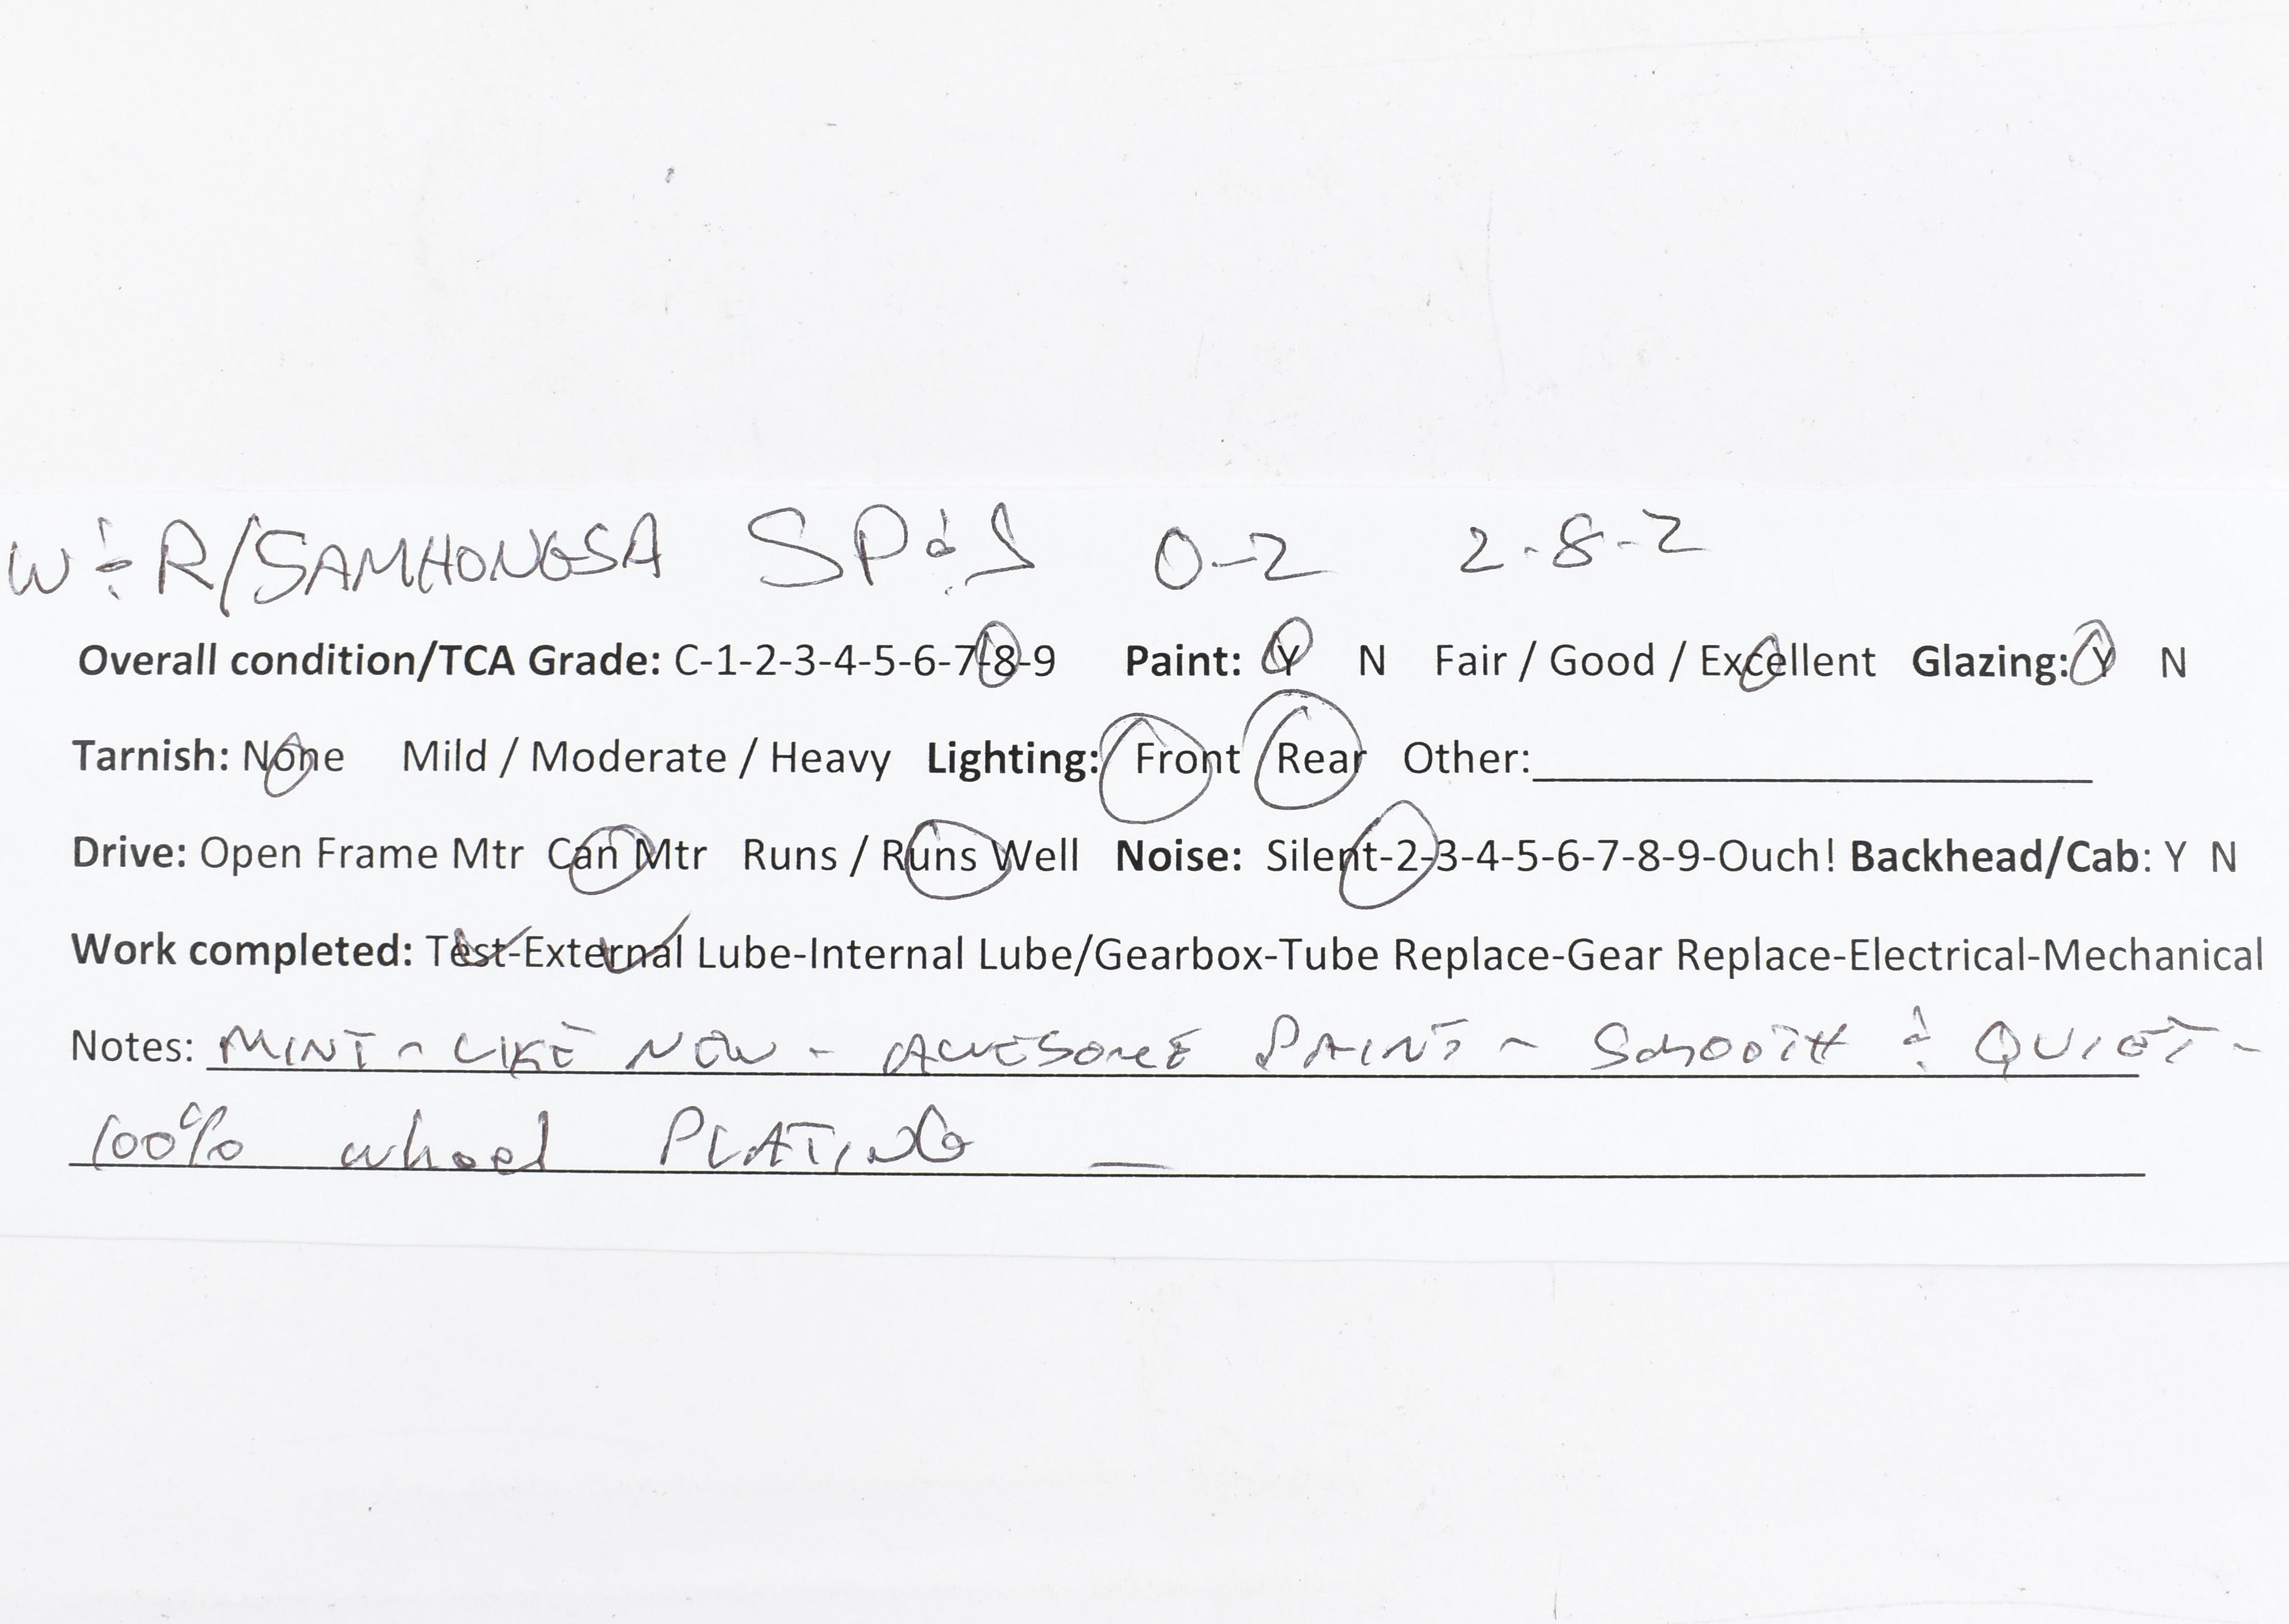 W & R/SAMHONGSA SP&S O-2 2-8-2
Overall condition/TCA Grade: C-1-2-3-4-5-6-7-8-9 Paint: Y N Fair / Good / Excellent Glazing: Y N
Tarnish: None Mild / Moderate / Heavy Lighting: Front Rear Other:
Drive: Open Frame Mtr Can Mtr Runs / Runs Well Noise: Silent-2-3-4-5-6-7-8-9-Ouch! Backhead/Cab: Y N
Work completed: Test-External Lube-Internal Lube/Gearbox-Tube Replace-Gear Replace-Electrical-Mechanical
Notes: MINT - LIKE NEW - AWESOME PAINT - SMOOTH & QUIET -
100% wheel PLATING —